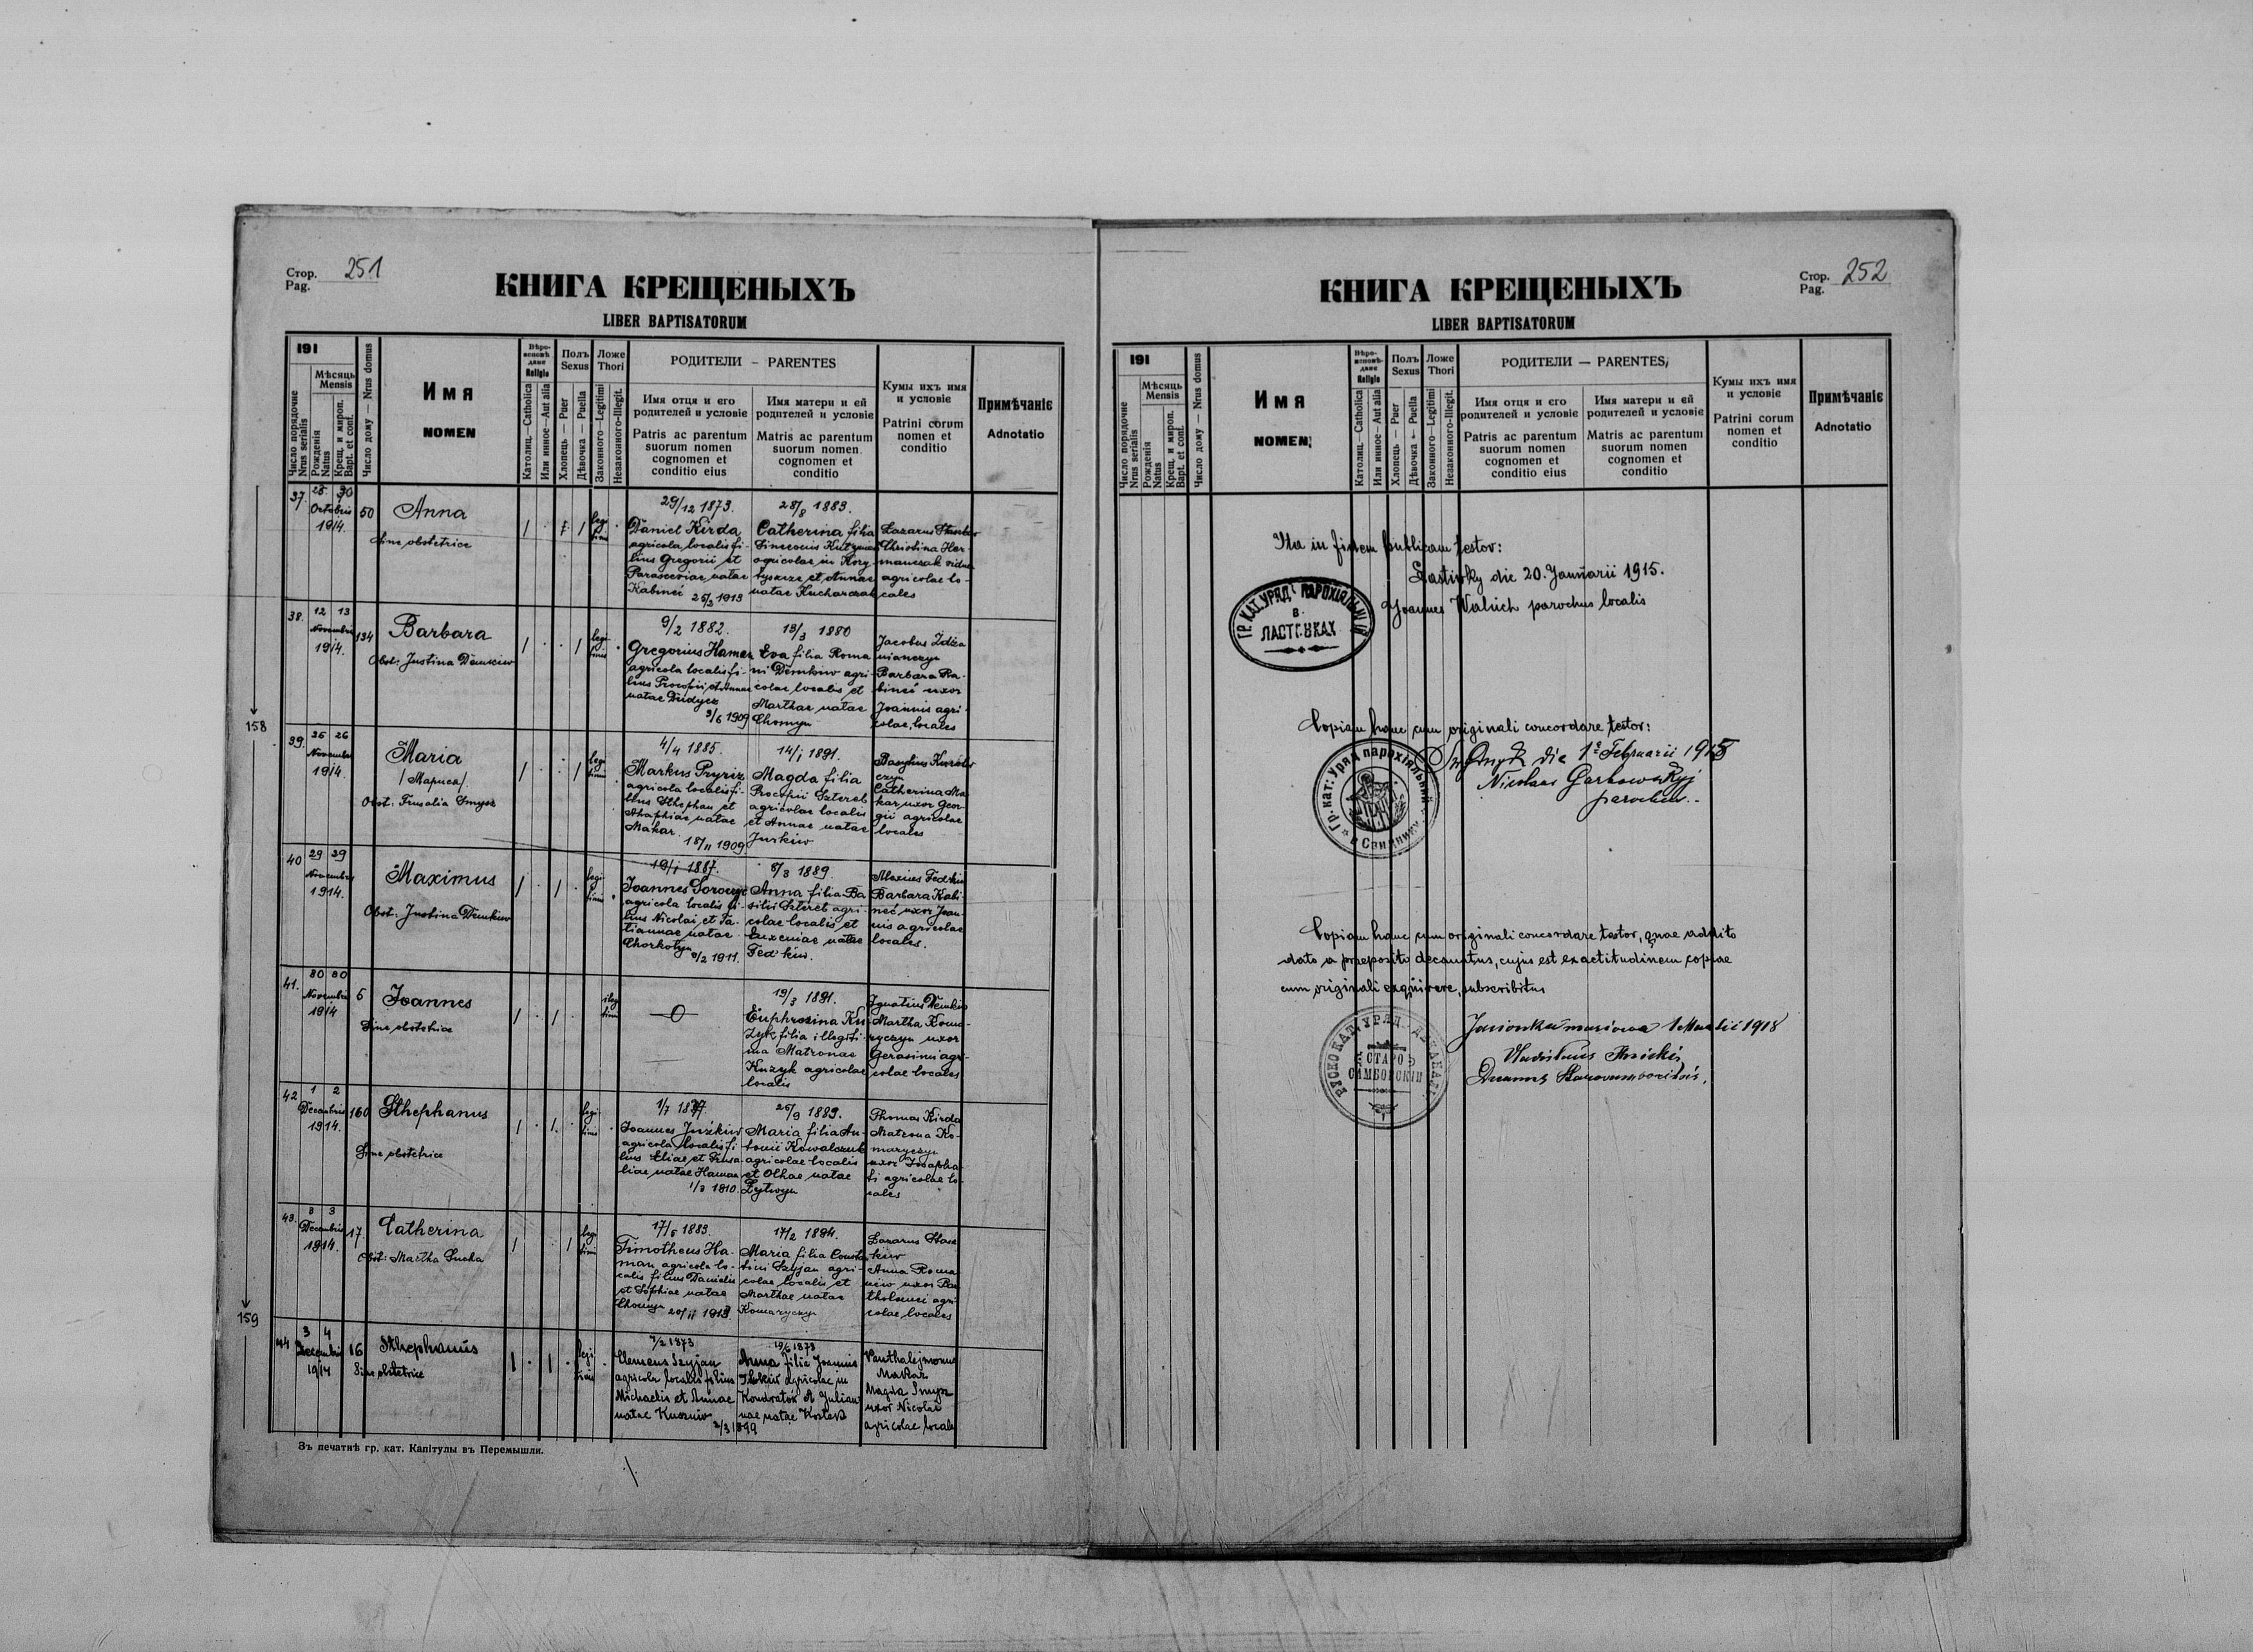 Стор. 251
Pag.
КНИГА КРЕЩЕНЫХЪ
LIBER BAPTISATORUM
191
Число порядочне
Nrus serialis
Мѣсяць
Mensis
Рожденія
Natus
Крещ. и мироп.
Bapt. et conf.
Число дому — Nrus domus
Имя
NOMEN
Вѣро-
исповѣ-
даніе
Religio
Католиц.—Catholica
Или инное—Aut alia
Полъ
Sexus
Хлопець — Puer
Дѣвочка — Puella
Ложе
Thori
Законного—Legitimi
Незаконного—Illegit.
РОДИТЕЛИ — PARENTES
Имя отця и єго
родителей и условіє
Patris ac parentum
suorum nomen
cognomen et
conditio eius
Имя матери и єй
родителей и условіє
Matris ac parentum
suorum nomen
cognomen et
conditio
Кумы ихъ имя
и условіе
Patrini corum
nomen et
conditio
Примѣчаніє
Adnotatio
37. 28. 30
Octobris
1914.
50
Anna
Sine obstetrice
1 . 1 legi
timi
29/12 1873.
Daniel Kirda
agricola localis fi-
lius Gregorii et
Parasceviae natae
Kabineć 25/2 1913
28/8 1883.
Catherina filia
Simeonis
agricolae in Kory-
tyszcze et Annae
natae Kucharczak
Lazarus
Christina Her-
manczak vidua
agricolae lo-
cales
38. 12 13
Novembris
1914.
134
Barbara
Obst: Justina Demkiw
1 . . 1 legi
timi .
9/2 1882.
Gregorius Haman
agricola localis fi-
lius Procopii et Annae
natae Dudycz
9/6 1909
13/3 1880
Eva filia Roma
ni Demkiw agri-
colae localis et
Marthae natae
Chomyn
Jacobus Zdża
nianczyn
Barbara Ka-
bineć uxor
Joannis agri-
colae, locales
158
39. 25 26
Novembris
1914.
Maria
/Мариса/
Obst: Frusalia Smysz
1 . . 1 legi
timi
4/4 1885.
Markus Pryriz
agricola localis fi-
lius Sthephan et
Ahaphiae natae
Makar.
18/11 1909
14/1 1891.
Magda filia
Procopii Szterеb
agricolae localis
et Annae natae
Jurkiw
Basylius
czyn
Catherina Ma
kar uxor Geor-
gii agricolae
locales
40 29 29
Novembris
1914.
Maximus
Obst: Justina Demkiw
1 . 1 . legi
timi .
19/1 1887.
Joannes
agricola localis fi-
lius Nicolai et Ta-
tiannae natae
Chorkotyn
/2 1911.
8/3 1889.
Anna filia Ba
silii Szterеb agri-
colae localis et
Euxeniae natae
Fed'kiw.
Alexius Fedkiw
Barbara Kabi-
neć uxor Joan-
nis agricolae
locales.
41. 30 30
Novembris
1914
5
Joannes
Sine obstetrice
1 . 1 . illegi
timi
—0—
19/3 1891.
Euphrosina Ku-
zyk filia illegiti-
ma Matronae
Kuzyk agricolae
localis
Ignatius Demkiw
Martha Koma-
ryczyn uxor
Gerasimi agri-
colae locales
42 1 2
Decembris
1914.
160
Sthephanus
Sine obstetrice
1 . 1 . legi
timi .
Joannes Juśkiw
agricola localis fi-
lius Eliae et Frusa-
liae natae Haman
1/3 1910.
25/9 1889.
Maria filia An-
tonii Kowalczuk
agricolae localis
et Olhae natae
Łytwyn
Thomas Kirda
Matrona Ko-
maryczyn
uxor Josapha-
ti agricolae lo-
cales
43. 3 3
Decembris
1914.
17.
Catherina
Obst: Martha Sucha
1 . 1 legi
timi
17/5 1883.
Timotheus Ha-
man agricola lo-
calis filius Danielis
et Sophiae natae
Chomyn 20/11 1913.
17/2 1894.
Maria filia Constan
tini Szyjan agri-
colae localis et
Marthae natae
Komaryczyn
Lazarus Stas
kiw
Anna Roma
niw uxor Bar
tholomei agri-
colae locales
159
44 3 4
Decembris
1914
16
Sthephanus
Sine obstetrice
1 . 1 . legi
timi .
4/2 1873
Clemens Szyjan
agricola localis filius
Michaelis et Annae
natae Kuzniw
2/3 1899
19/6 1873
Anna filia Joannis
Ilkiw agricolae in
Kondratów et Julian
nae natae Kostaś
Panthalejmonus
Makar
Magda Smysz
uxor Nicolai
agricolae locale
Зъ печатнѣ гр. кат. Капітулы въ Перемышли.
Стор. 252
Pag.
КНИГА КРЕЩЕНЫХЪ
LIBER BAPTISATORUM
191
Число порядочне
Nrus serialis
Мѣсяць
Mensis
Рожденія
Natus
Крещ. и мироп.
Bapt. et conf.
Число дому — Nrus domus
Имя
NOMEN
Вѣро-
исповѣ-
даніе
Religio
Католиц.—Catholica
Или инное—Aut alia
Полъ
Sexus
Хлопець — Puer
Дѣвочка — Puella
Ложе
Thori
Законного—Legitimi
Незаконного—Illegit.
РОДИТЕЛИ — PARENTES
Имя отця и єго
родителей и условіє
Patris ac parentum
suorum nomen
cognomen et
conditio eius
Имя матери и єй
родителей и условіє
Matris ac parentum
suorum nomen
cognomen et
conditio
Кумы ихъ имя
и условіе
Patrini corum
nomen et
conditio
Примѣчаніє
Adnotatio
Ita in fidem publicam testor:
Lastiwky die 20. Januarii 1915.
Joannes Waluch parochus localis
ГР. КАТ. УРЯД ПАРОХІЯЛЬНИЙ
в
ЛАСТIВКАХ
Copiam hanc cum originali concordare testor:
die 1º Februarii 1915
Nicolaus Garbowskyj
parochus.
Гр. кат: Уряд парохіяльний
в Свиднику
Copiam hanc cum originali concordare testor, quae addito
dato a praeposito decanatus, cujus est exactitudinem copiae
cum originali exquirere, subscribitur
РУСКО КАТ. УРЯД ДЕКАНАЛ.
СТАРО
САМБОРСКІЙ
Jasionka masiowa 1 Martii 1918